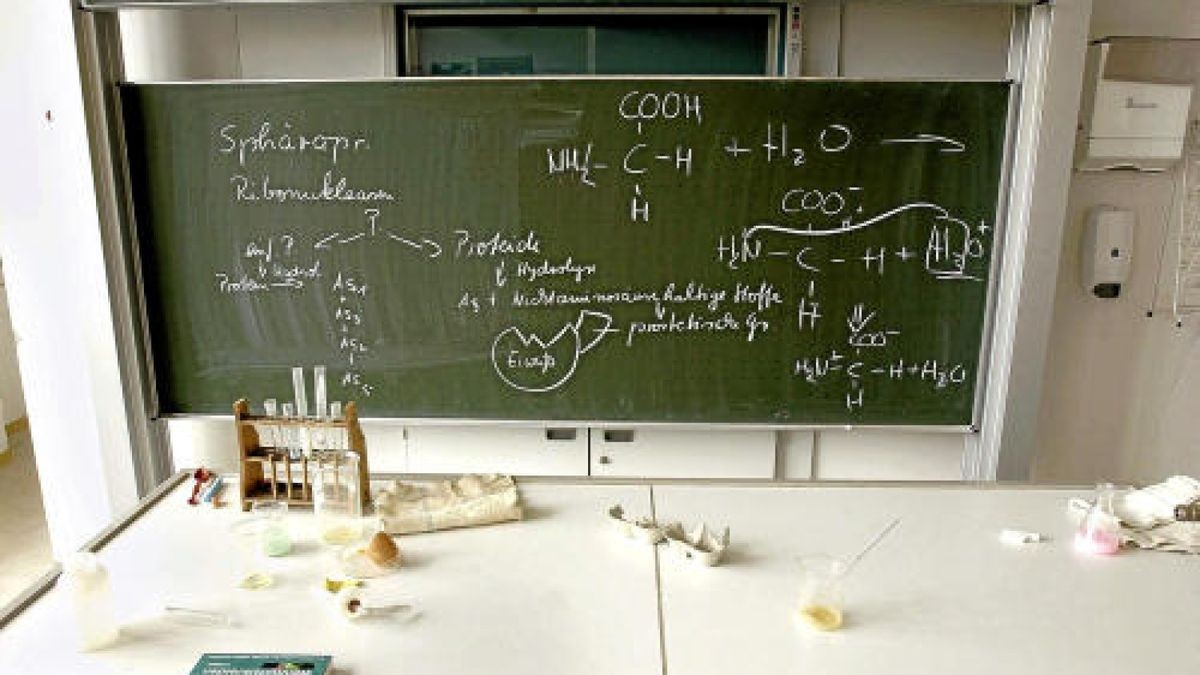 Sphäropr.
Ribonukleasen
?
auf ?
Hydrol
Protein →
AS₁
+
AS₃
+
AS₂
+
AS₅
Proteide
Hydrolyse
AS + Nichtaminosäurehaltige Stoffe
prosthetische Gr
Eiweiß
COOH
NH₂ – C – H + H₂O →
H
COO⁻
H₂N – C – H + H₃O⁺
H
COO⁻
H₂N⁺ – C – H + H₂O
H